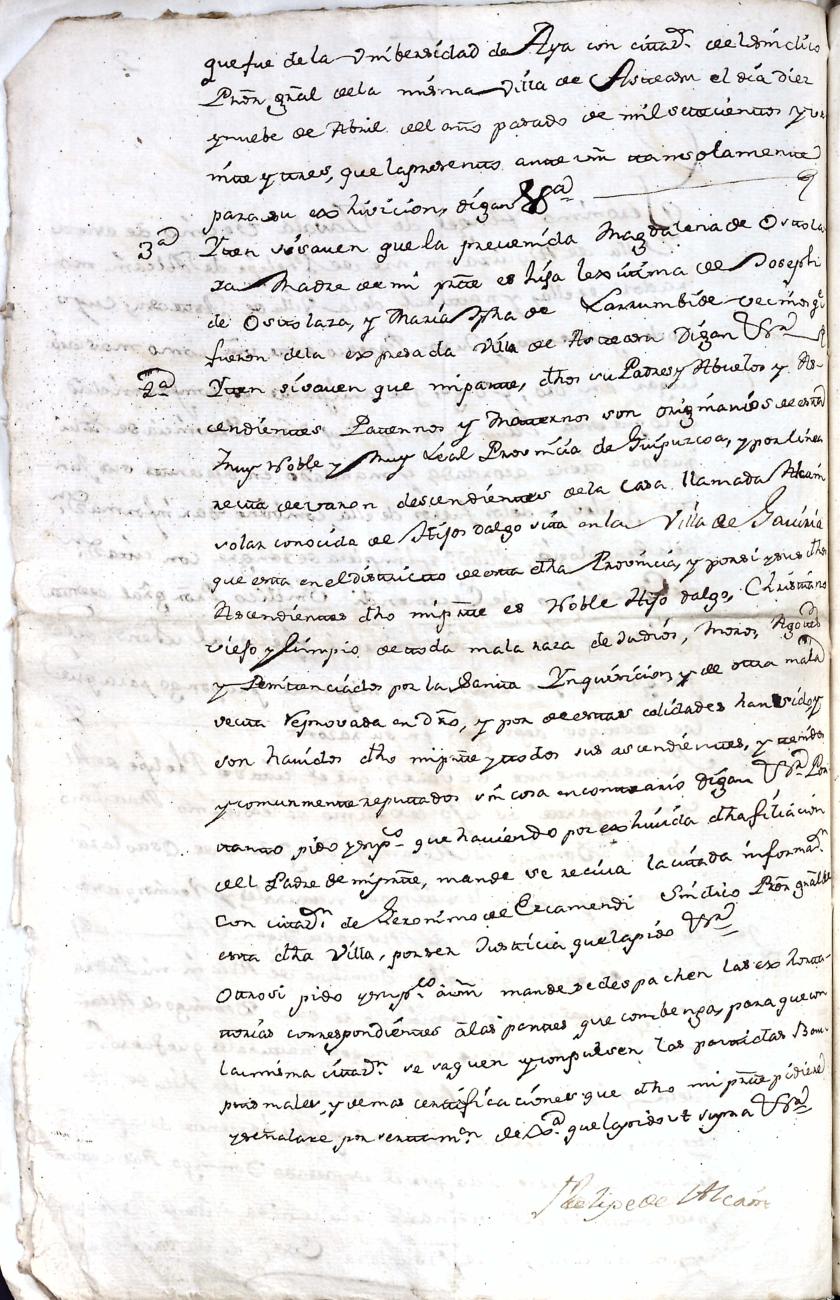 que fue de la Vnibersidad de Aya con cittaon. del Sindico
Pror. gral de la misma Villa de Asteasu el dia diez
y nuebe de Abril del año pasado de mil setecientos y
inte y tres, que la presento ante vm tansolamente
para su exhivicion, digan &a
3a Yten sisaven que la prevenida Magdalena de Ostola
za Madre de mi pte es hija lexitima de Joseph
de Ostolaza, y Maria Jpha de Larrumbide vecinos qe
fueron dela expresada Villa de Asteasu Digan &a
4a Yten sisaven que miparte, dhos su Padres y Abuelos y As-
cendientes Paternos y Maternos son originarios de esta
Muy Noble y Muy Leal Provincia de Guipuzcoa, y por linea
recta de varon descendientes de la Casa llamada Alcain
solar conocida de Hijos dalgo sita en la Villa de Gaviria
que esta en el districto de esta dha Provincia, y por si y sus dhos
Ascendientes dho mi pte es Noble Hijo dalgo, Christiano
viejo y limpio de toda mala raza de Judios, Moros, Agotes
y Penitenciados por la Santa Ynquisicion, y de otra mala
secta reprovada en dro, y por de estas calidades han sido, y
son havidos dho mi pte y todos sus ascendientes, y tenidos
y comunmente reputados sin cosa en contrario digan &a Por
tanto pido y supco. que haviendo por exhivida dha filiacion
del Padre de mi pte, mande se reciva la citada informaon
con cittaon de Geronimo de Ercamendi Sindico Pror gral de
esta dha Villa, por ser Justicia que la pido &a
Otrosi pido y supco. a vm mande se despachen las exhorta-
torias correspondientes a las partes que combenga, para que con
la misma cittaon se saquen y compulsen las partidas Bau-
tismales, y demas certificaciones que dho mi pte pidiere
y señalare por ser tamn. de Jxa que la pido ut supra &a
Phelipe de Alcain